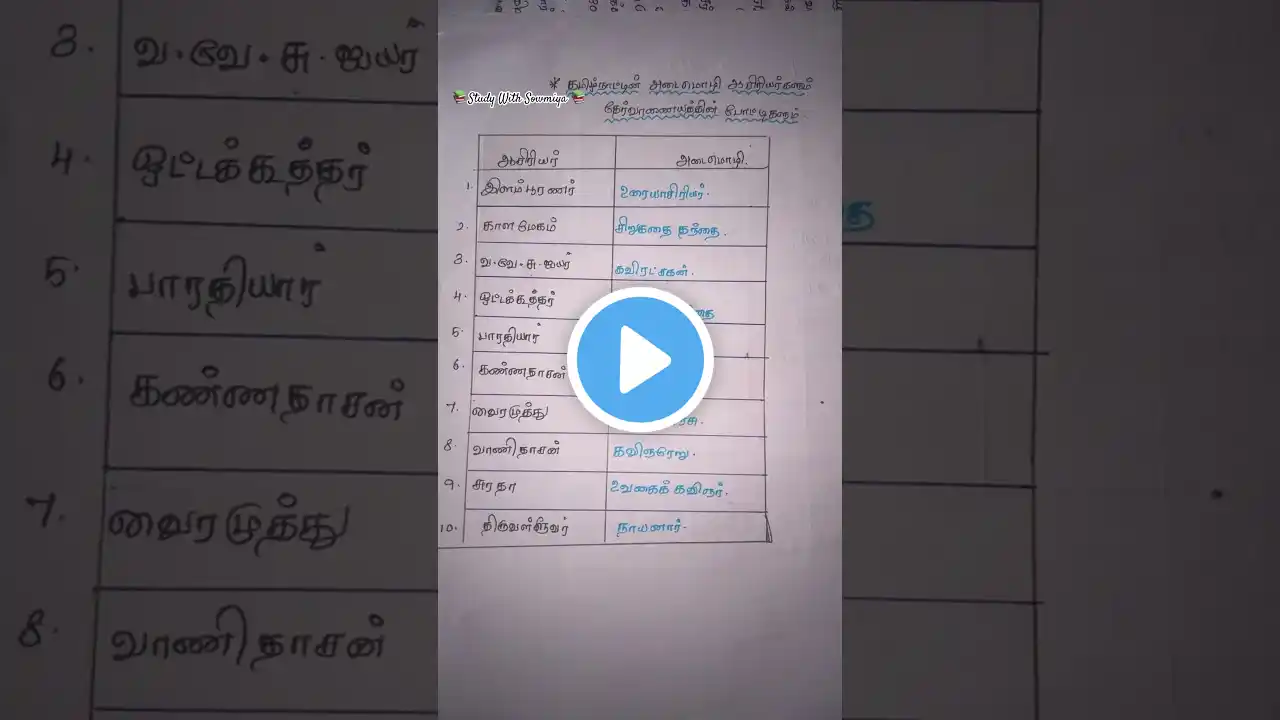 * தமிழ்நாட்டின் அடைமொழி ஆசிரியர்களும்
Study With Sowmiya
தேர்வாணையத்தின் போட்டிகளும்.
ஆசிரியர் அடைமொழி.
1. இளம்பூரணர் உரையாசிரியர்.
2. காளமேகம் சிறுகதை தந்தை.
3. வ.வே.சு.ஐயர் கவிரட்சகன்.
4. ஒட்டக்கூத்தர்
5. பாரதியார்
6. கண்ணதாசன்
7. வைரமுத்து
8. வாணிதாசன் கவிஞரேறு.
9. சுரதா உவகைக் கவிஞர்.
10. திருவள்ளுவர் நாயனார்.
3. வ.வே.சு.ஐயர்
4. ஒட்டக்கூத்தர்
5. பாரதியார்
6. கண்ணதாசன்
7. வைரமுத்து
8. வாணிதாசன்